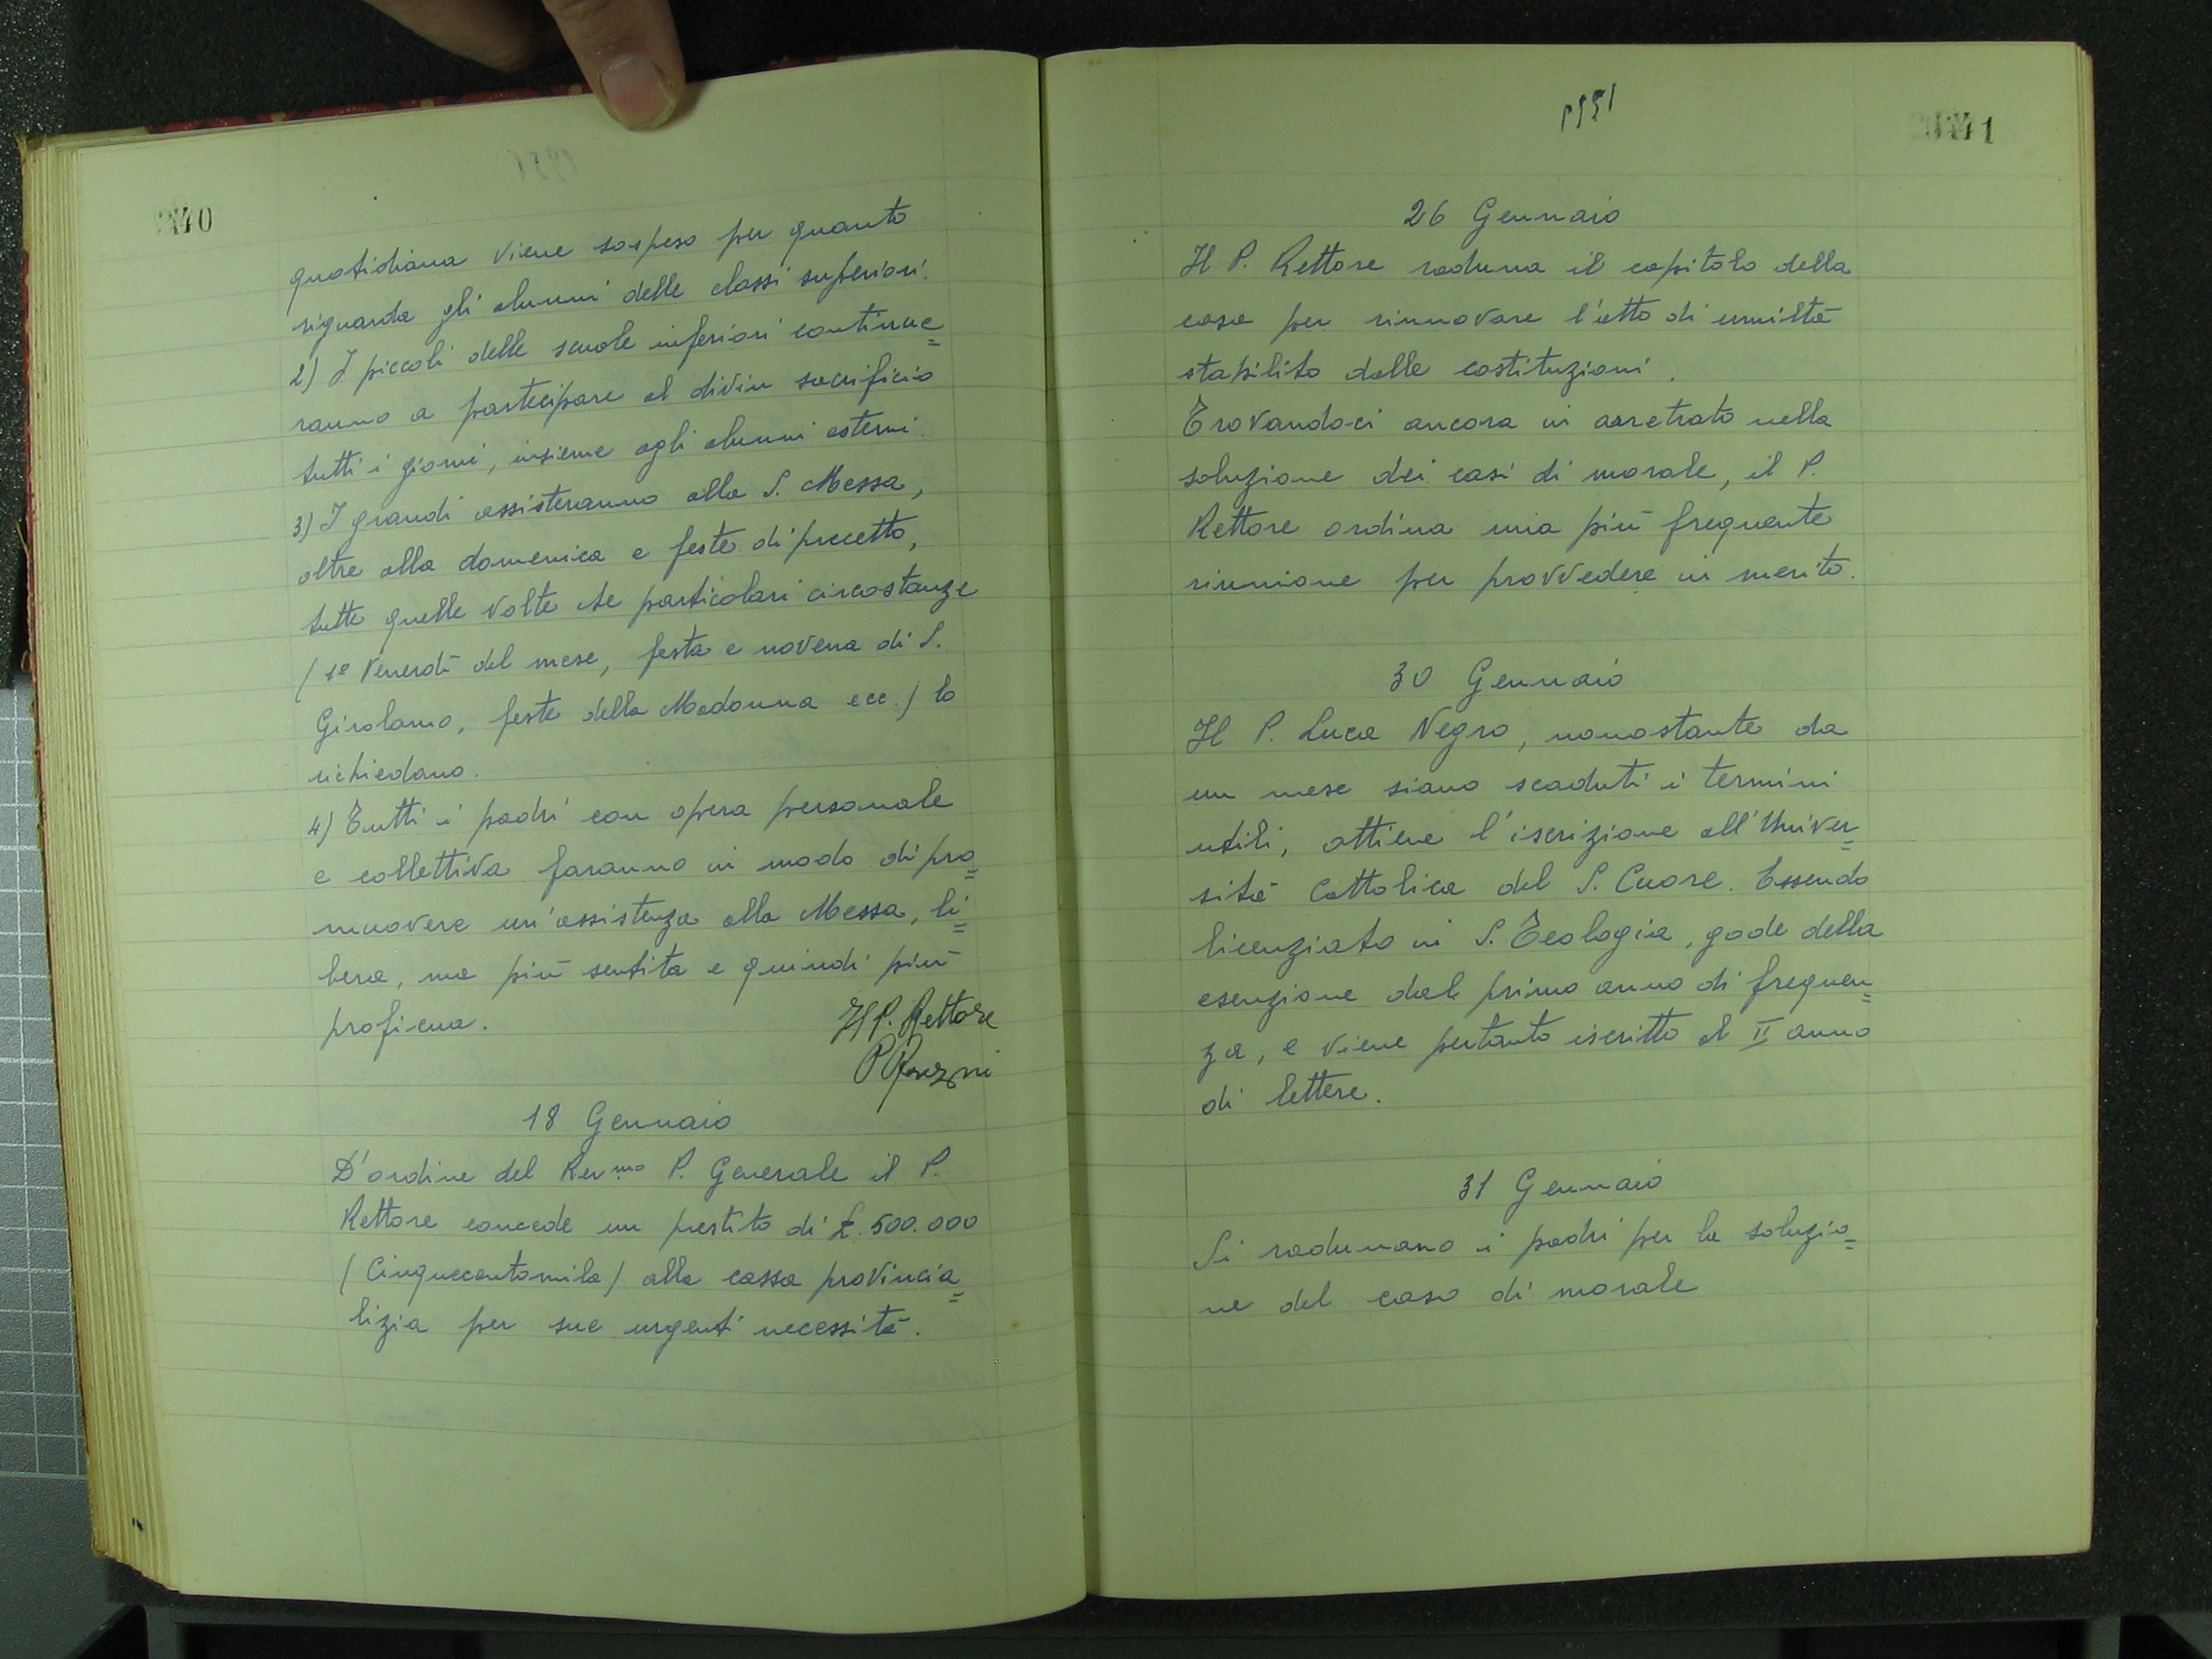 40
quotidiana viene sospeso per quanto
riguarda gli alunni delle classi superiori.
2) I piccoli delle scuole inferiori continue=
ranno a partecipare al divin sacrificio
tutti i giorni, insieme agli alunni esterni.
3) I grandi assisteranno alla S. Messa,
oltre alla domenica e feste di precetto,
tutte quelle volte che particolari circostanze
(1º Venerdì del mese, festa e novena di S.
Girolamo, feste della Madonna ecc.) lo
richiedano.
4) Tutti i padri con opera personale
e collettiva faranno in modo di pro=
muovere un'assistenza alla Messa, li=
bera, ma più sentita e quindi più
proficua.
Il P. Rettore
18 Gennaio
D'ordine del Rev.mo P. Generale il P.
Rettore concede un prestito di £. 500.000
(Cinquecentomila) alla cassa provincia=
lizia per sue urgenti necessità.
1951
41
26 Gennaio
Il P. Rettore raduna il capitolo della
casa per rinnovare l'atto di umiltà
stabilito dalle costituzioni.
Trovandoci ancora in arretrato nella
soluzione dei casi di morale, il P.
Rettore ordina una più frequente
riunione per provvedere in merito.
30 Gennaio
Il P. Luca Negro, nonostante da
un mese siano scaduti i termini
utili, ottiene l'iscrizione all'Univer=
sità Cattolica del S. Cuore. Essendo
licenziato in S. Teologia, gode della
esenzione dal primo anno di frequen=
za, e viene pertanto iscritto al II anno
di lettere.
31 Gennaio
Si radunano i padri per la soluzio=
ne del caso di morale